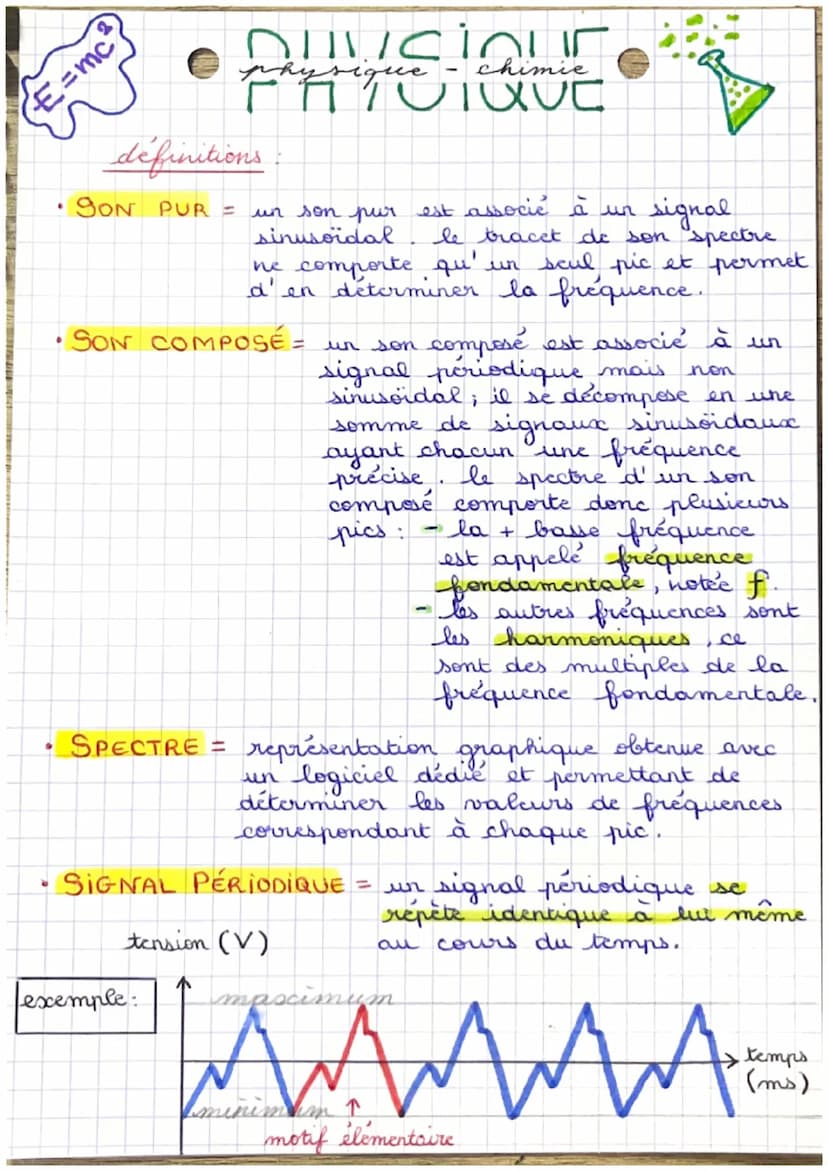 E=mc²
PHYSIQUE
physique - chimie
définitions :
• SON PUR = un son pur est associé à un signal
sinusoïdal. le tracet de son spectre
ne comporte qu'un seul pic et permet
d'en déterminer la fréquence.
• SON COMPOSÉ = un son composé est associé à un
signal périodique mais non
sinusoïdal ; il se décompose en une
somme de signaux sinusoïdaux
ayant chacun une fréquence
précise. le spectre d'un son
composé comporte donc plusieurs
pics : - la + basse fréquence
est appelé fréquence
fondamentale, notée f.
- les autres fréquences sont
les harmoniques, ce
sont des multiples de la
fréquence fondamentale.
• SPECTRE = représentation graphique obtenue avec
un logiciel dédié et permettant de
déterminer les valeurs de fréquences
correspondant à chaque pic.
• SIGNAL PÉRIODIQUE = un signal périodique se
répète identique à lui même
au cours du temps.
tension (V)
exemple :
maximum
temps
(ms)
minimum
motif élémentaire